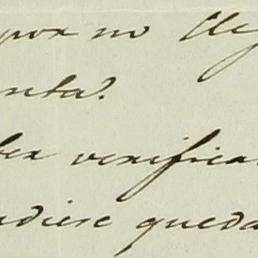 por no
nta.
ber verifica
udiese queda